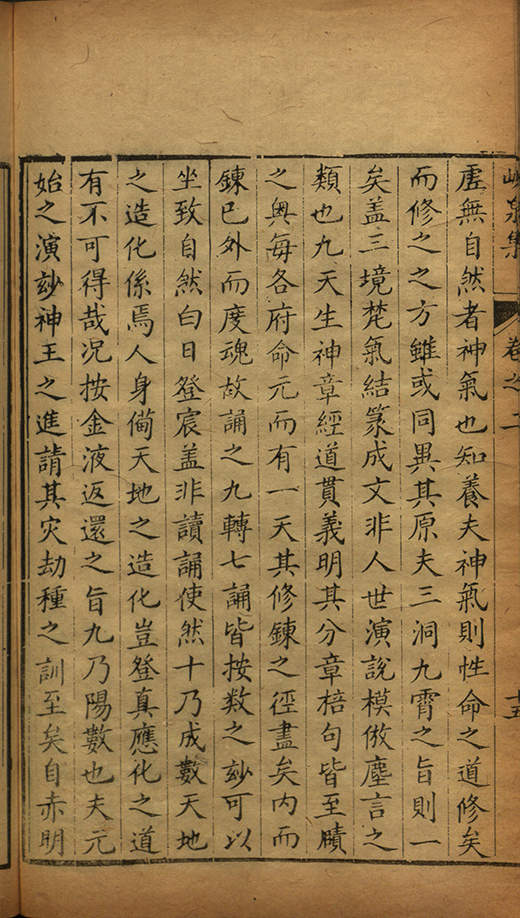 峴泉集 卷之二 十五
虛無自然者神氣也知養夫神氣則性命之道修矣
而修之之方雖或同異其原夫三洞九霄之旨則一
矣盖三境梵氣結篆成文非人世演說模倣塵言之
類也九天生神章經道貫義明其分章棓句皆至賾
之奥每各府命元而有一天其修鍊之徑盡矣内而
鍊已外而度魂故誦之九轉七誦皆按数之玅可以
坐致自然白日登宸盖非讀誦使然十乃成數天地
之造化係焉人身俻天地之造化豈登真應化之道
有不可得哉况按金液返還之旨九乃陽數也夫元
始之演玅神王之進請其灾劫種之訓至矣自赤明